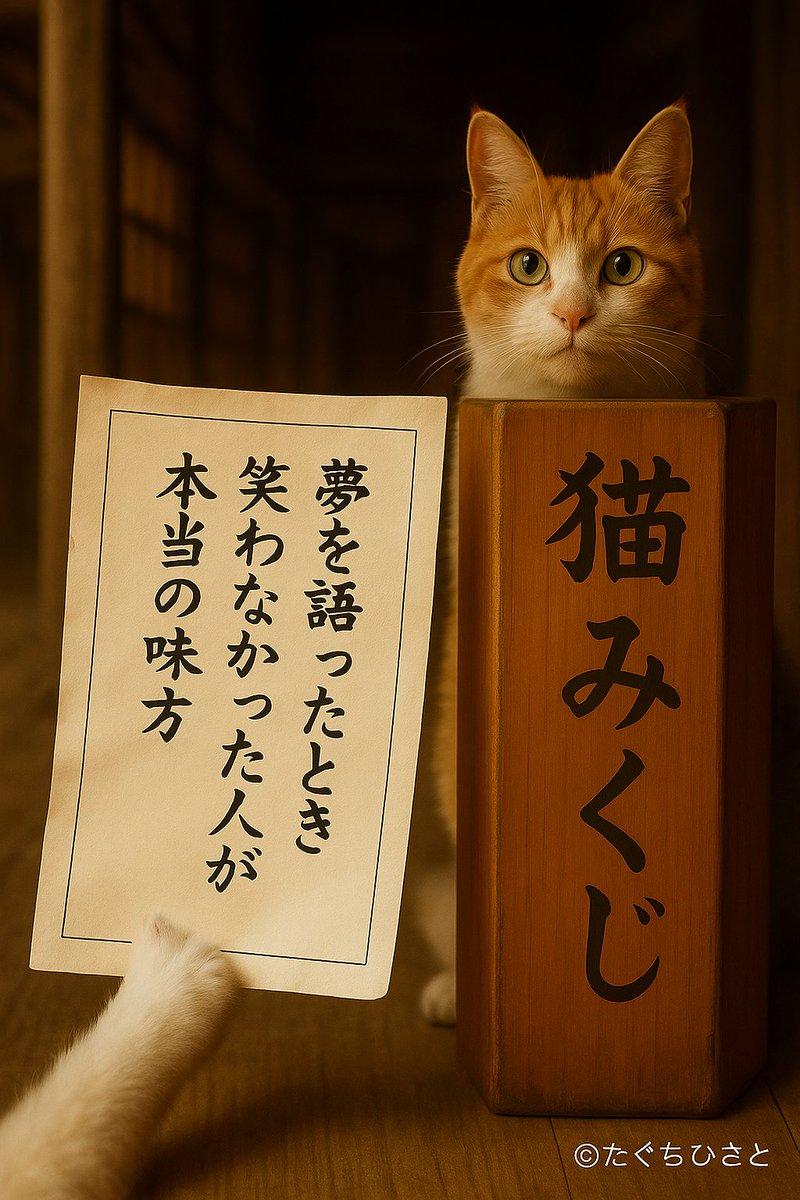 夢を語ったとき
笑わなかった人が
本当の味方
猫みくじ
©たぐちひさと